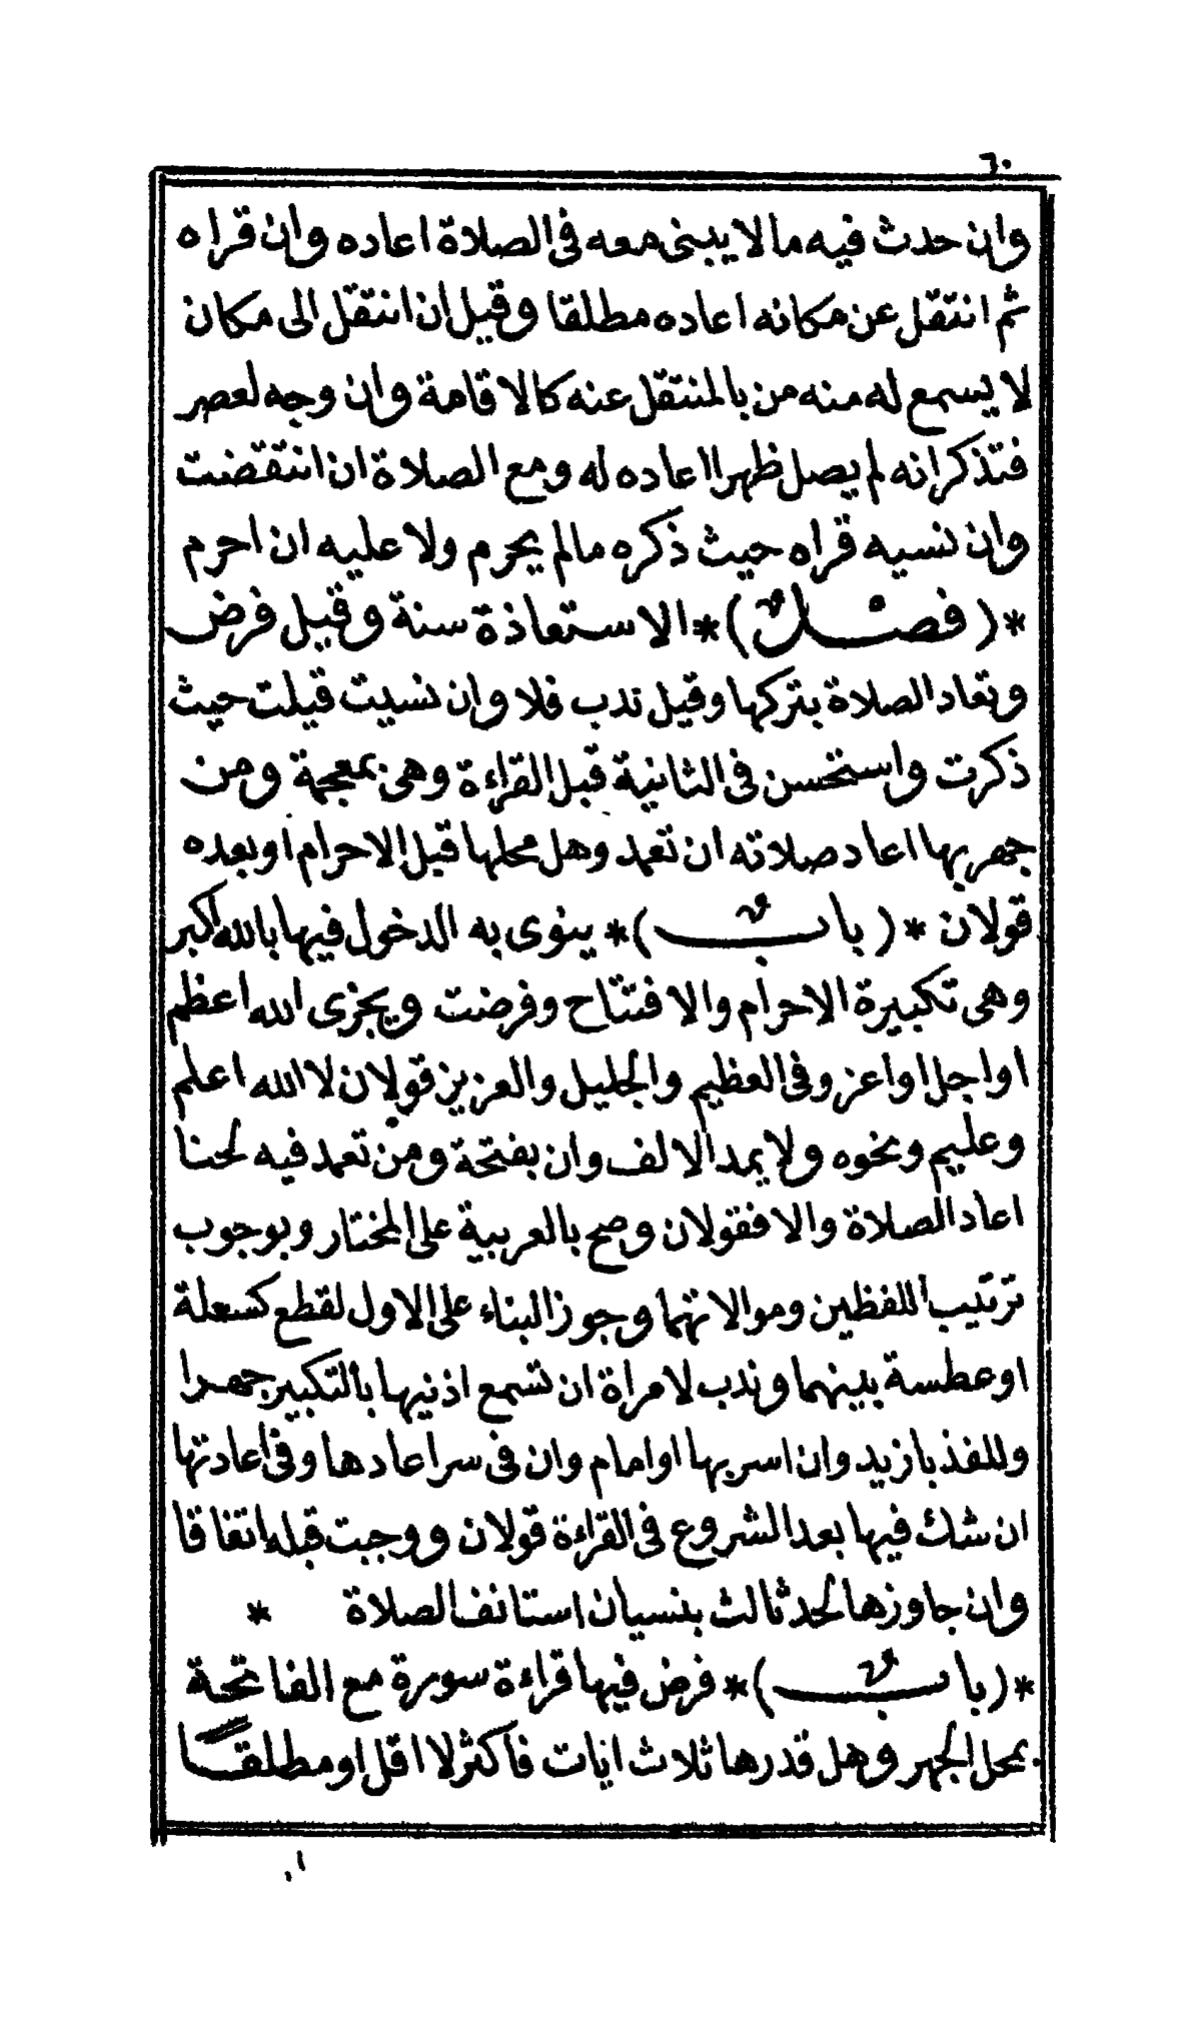 ٦٠
وان حدث فيه مالا يبنى معه فى الصلاة اعاده وان قراه
ثم انتقل عن مكانه اعاده مطلقا وقيل ان انتقل الى مكان
لا يسمع له منه من بالمنتقل عنه كالاقامة وان وجه لعصر
فتذكر انه لم يصل ظهرا اعاده له ومع الصلاة ان انتقضت
وان نسيه قراه حيث ذكره مالم يحرم ولا عليه ان احرم
*( فصل )* الاستعاذة سنة وقيل فرض
وتعاد الصلاة بتركها وقيل ندب فلا وان نسيت قيلت حيث
ذكرت واستحسن فى الثانية قبل القراءة وهى بمعجمة ومن
جهر بها اعاد صلاته ان تعمد وهل محلها قبل الاحرام او بعده
قولان *( باب )* ينوى به الدخول فيها بالله اكبر
وهى تكبيرة الاحرام والافتتاح وفرضت ويجزى الله اعظم
او اجل او اعز وفى العظيم والجليل والعزيز قولان لا الله اعلم
وعليم ونحوه ولا يمد الالف وان بفتحة ومن تعمد فيه لحنا
اعاد الصلاة والا فقولان وصح بالعربية على المختار وبوجوب
ترتيب اللفظين وموالاتهما وجوز البناء على الاول لقطع كسعلة
او عطسة بينهما وندب لامراة ان تسمع اذنيها بالتكبير جهرا
وللفذ بازيد وان اسر بها او امام وان فى سر اعادها وفى اعادتها
ان شك فيها بعد الشروع فى القراءة قولان ووجبت قبله اتفاقا
وان جاوزها لحد ثالث بنسيان استانف الصلاة *
*( باب )* فرض فيها قراءة سورة مع الفاتحة
بمحل الجهر وهل قدرها ثلاث ايات فاكثر لا اقل او مطلقا